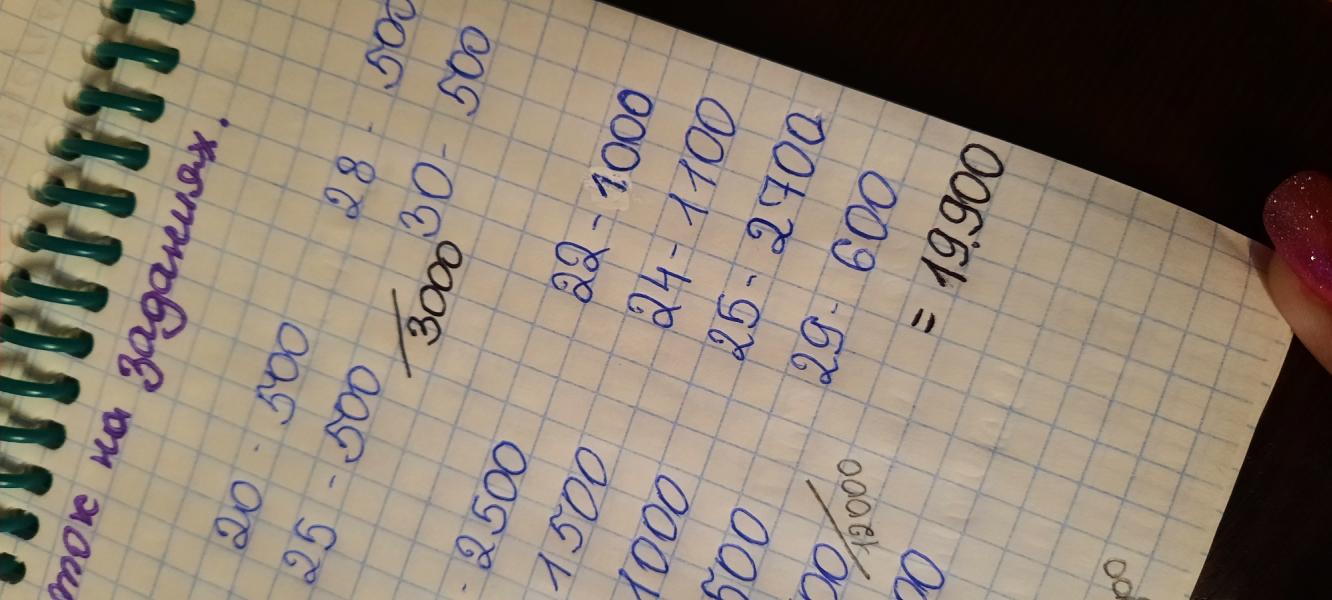 на заданиях.
20 - 500
25 - 500
28 - 500
30 - 500
/3000
- 2500
1500
1000
500
00/12000
00
22 - 1000
24 - 1100
25 - 2700
29 - 600
= 19.900